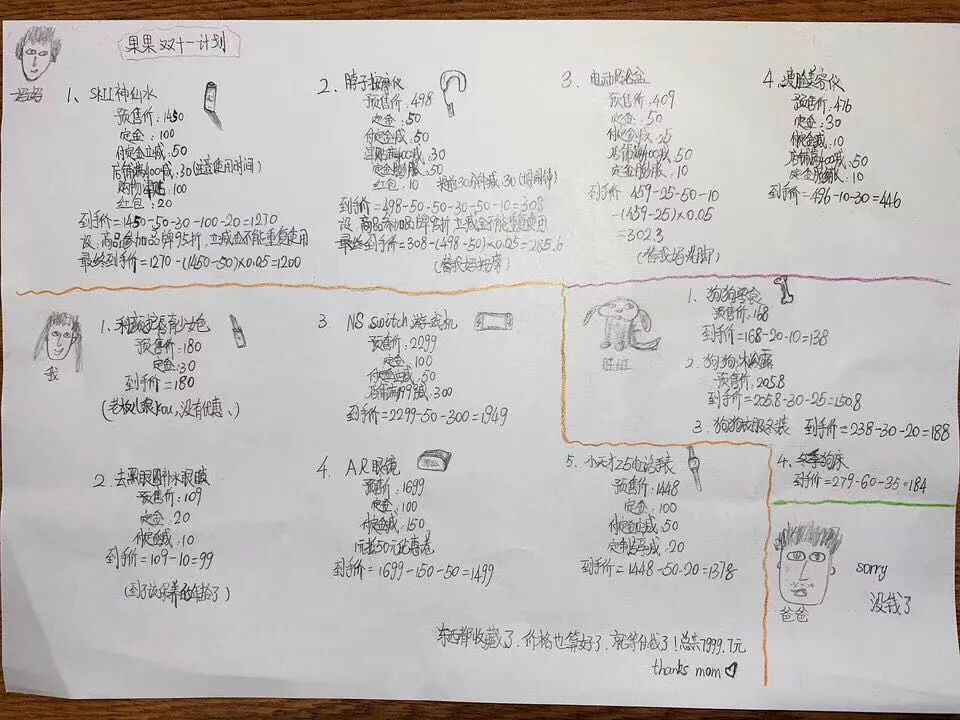 果果双十一计划
妈妈
1、SKII神仙水
预售价：1450
定金：100
付定金立减：50
店铺满400减：30(注意使用时间)
购物津贴：100
红包：20
到手价=1450-50-30-100-20=1270
设：商品参加品牌95折，立减金不能重复使用
最终到手价=1270-(1450-50)×0.05=1200
2、脖子按摩仪
预售价：498
定金：50
付定金减：50
满400减：30
定金膨胀：50
红包：10 提前30分钟减：30
到手价=498-50-50-30-50-10=308
设：商品参加品牌95折 立减金不能重复使用
最终到手价=308-(498-50)×0.05=285.6
(替我妈按摩)
3、电动足浴盆
预售价：409
定金：50
付定金减：25
店铺满400减：50
定金膨胀：10
到手价 459-25-50-10
-(459-25)×0.05
=302.3
(替我妈洗脚)
4、瘦脸美容仪
预售价：476
定金：30
付定金减：10
店铺满400减：50
定金膨胀：10
到手价=496-10-30=446
我
1、润唇护唇膏少女色
预售价：180
定金：30
到手价=180
(老板儿狠you，没有优惠、)
2、去黑眼圈补水眼膜
预售价：109
定金：20
付定金减：10
到手价=109-10=99
(到了该保养的年龄了)
3 NS switch游戏机
预售价：2299
定金：100
付定金立减：50
店铺满1999减：300
到手价=2299-50-300=1949
4. AR眼镜
预售价：1699
定金：100
付定金减：150
1元抢50元优惠卷
到手价=1699-150-50=1499
5、小天才Z5电话手表
预售价：1448
定金：100
付定金立减：50
定制立减：20
到手价=1448-50-20=1378
旺旺
1、狗狗零食
预售价：168
到手价=168-20-10=138
2、狗狗沐浴露
预售价：205.8
到手价=205.8-30-25=150.8
3、狗狗衣服冬装 到手价=238-30-20=188
4、冬季狗床
到手价=279-60-35=184
爸爸
sorry
没钱了
东西都收藏了，价格也算好了，就等付钱了！总共7999.7元
thanks mom